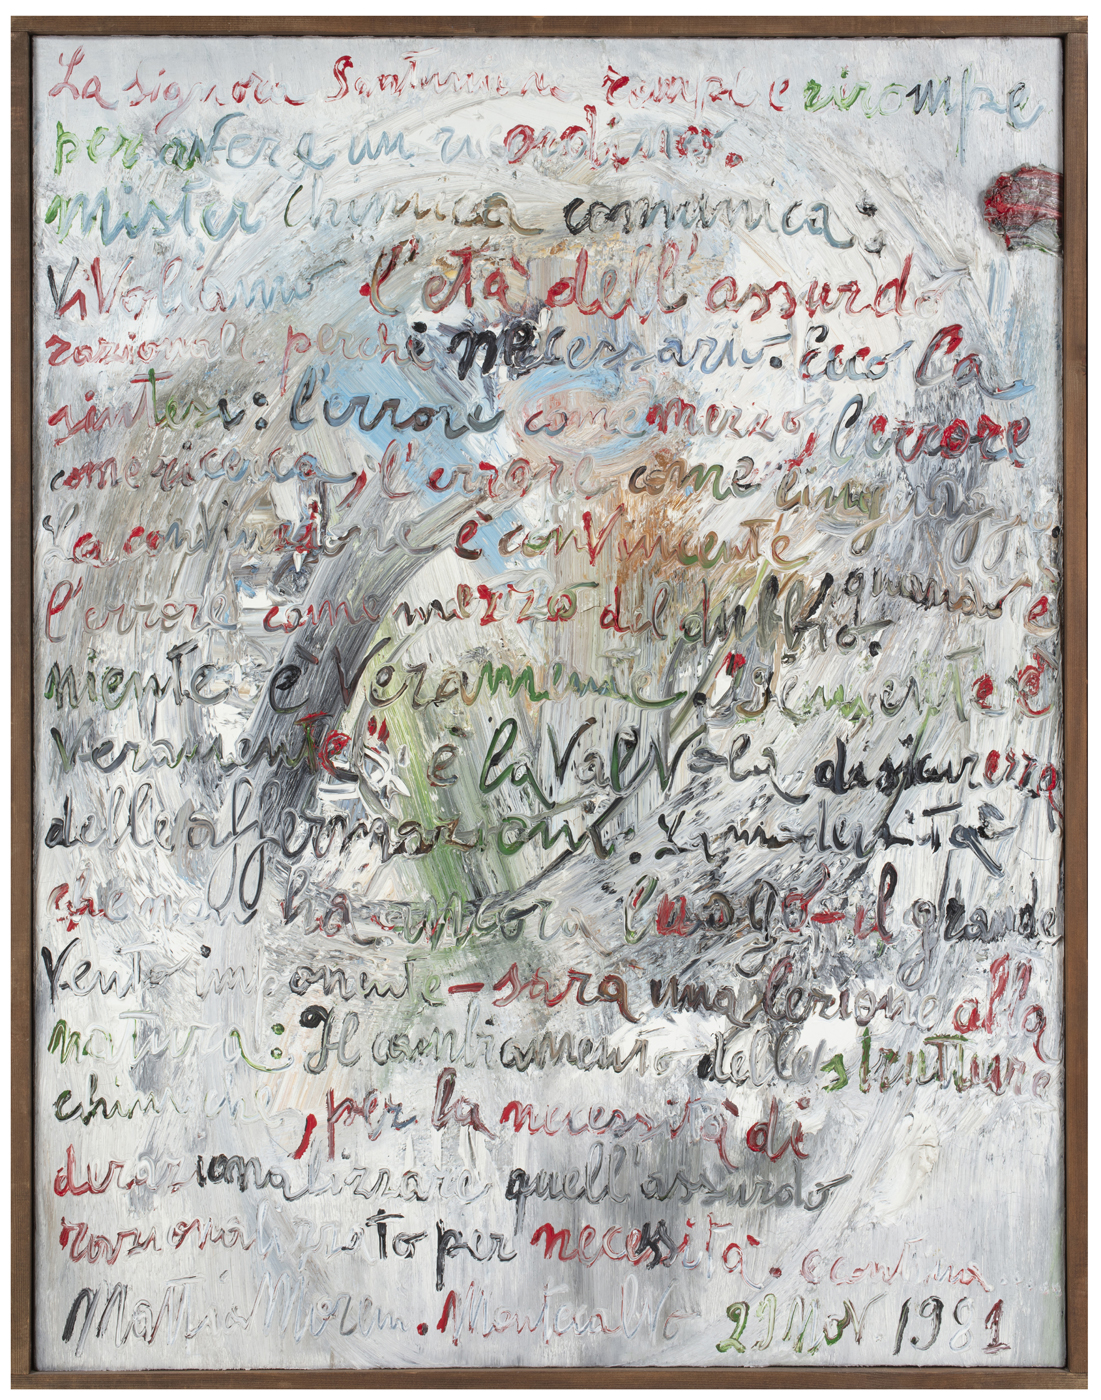 La signora rompe e rirompe
per avere un
mister Chimica comunica:
Viviamo l'età dell'assurdo
razionale perché necessario. Ecco la
sintesi: l'errore come mezzo, l'errore
come ricerca, l'errore come
è convincente
l'errore come mezzo del dubbio. quando
niente è veramente
veramente è la valvola di sicurezza
delle affermazioni.
che non ha ancora luogo - il grande
vento imponente - sarà una lezione alla
natura: Il cambiamento delle strutture
chimiche, per la necessità di
derazionalizzare quell'assurdo
razionalizzato per necessità. continua...
Mattia Moreni. 29 Nov. 1981